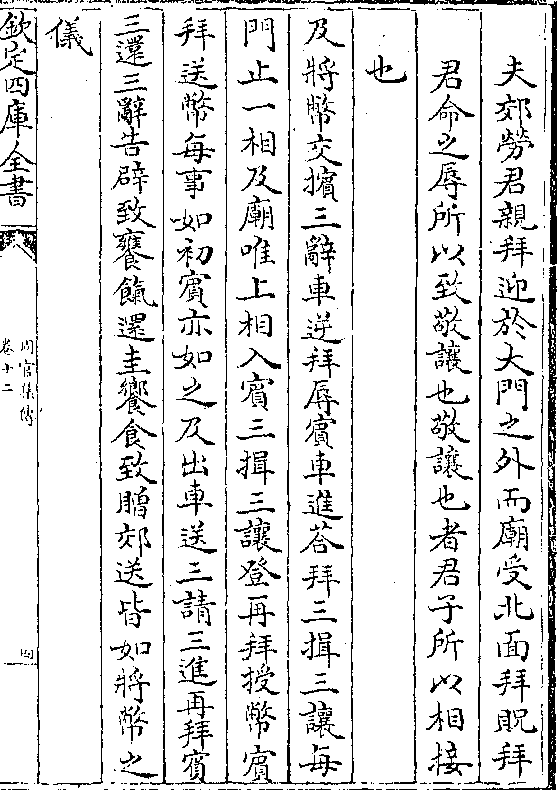 夫郊勞君親拜迎於大門之外而廟受北面拜貺拜
君命之辱所以致敬讓也敬讓也者君子所以相接
也
及將幣交擯三辭車逆拜辱賓車進荅拜三揖三讓每
門止一相及廟唯上相入賓三揖三讓登再拜授幣賓
拜送幣每事如初賓亦如之及出車送三請三進再拜賓
三還三辭告辟致饔餼還圭饗食致贈郊送皆如將幣之
儀
欽定四庫全書
周官集傳
卷十二
四